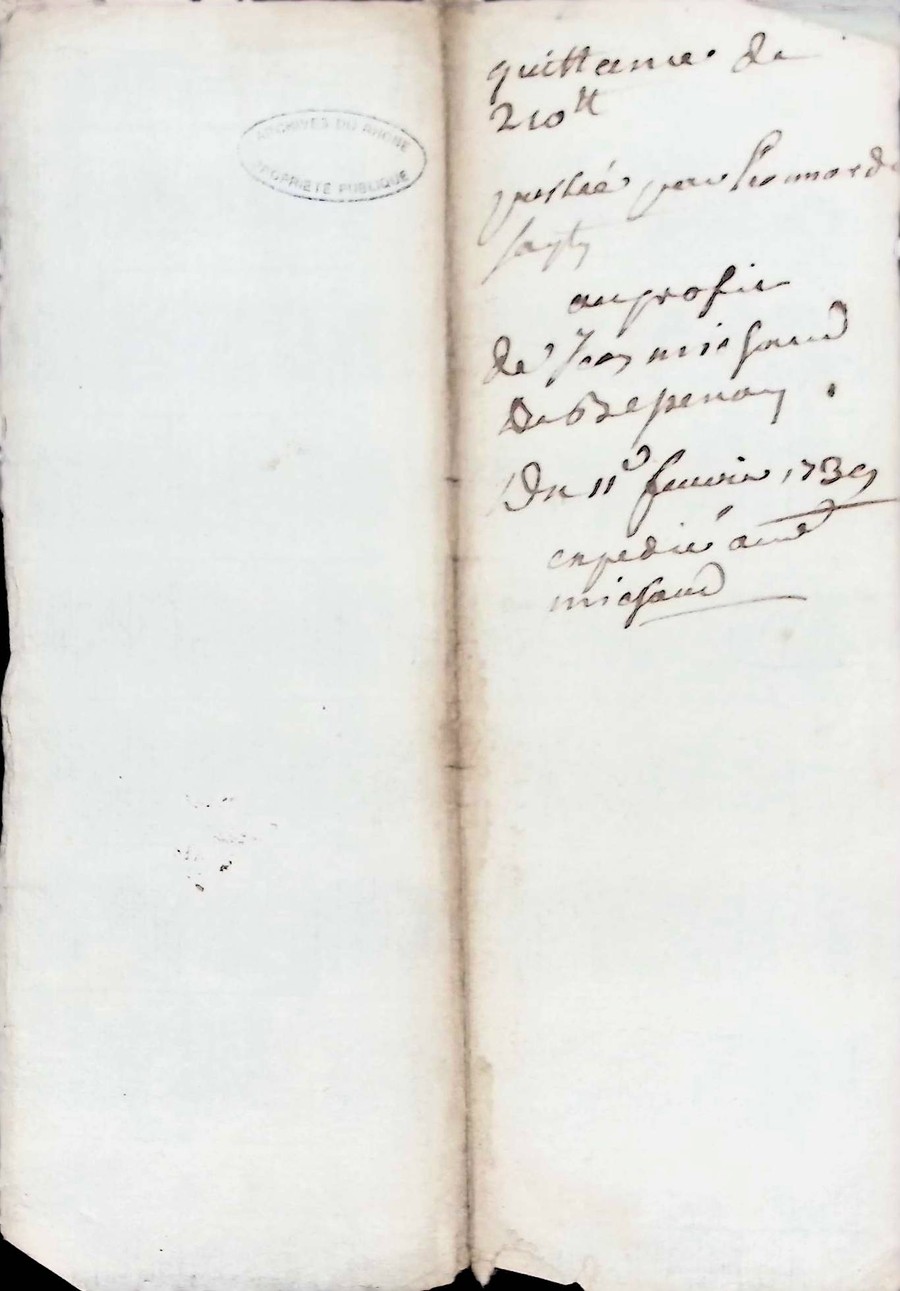 ARCHIVES DU RHONE
PROPRIÉTÉ PUBLIQUE
quittance de
210ᵗᵗ
passée par Leonard
au profit
de Jean michaud
De
Du 11ᵉ feuvrier 1739
expedié aud
michaud